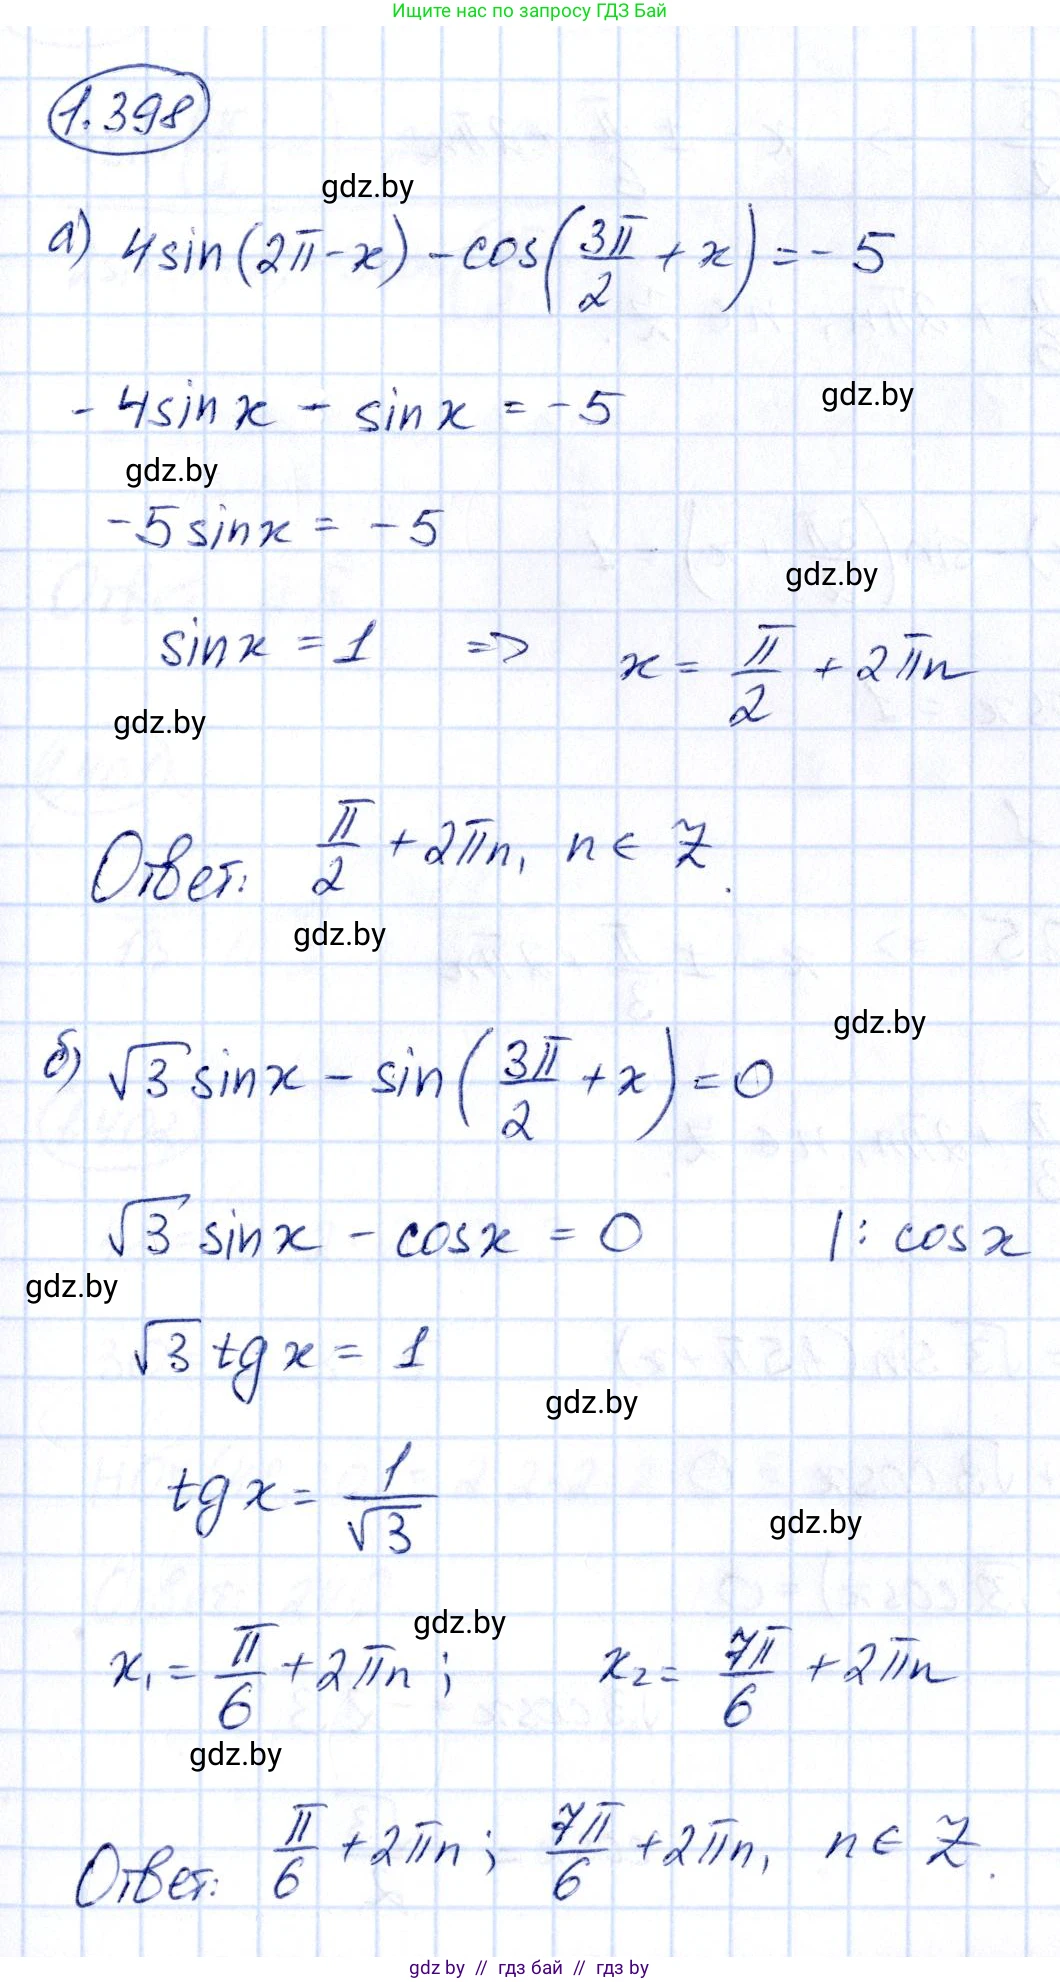 Ищите нас по запросу ГДЗ Бай
1.398
gdz.by
а) 4sin(2π-x) - cos(3π/2 + x) = - 5
- 4sin x - sin x = - 5
gdz.by
gdz.by
- 5 sin x = - 5
gdz.by
sin x = 1 => x = π/2 + 2πn
gdz.by
Ответ: π/2 + 2πn, n ∈ Z.
gdz.by
gdz.by
б) √3 sin x - sin(3π/2 + x) = 0
√3 sin x - cos x = 0 |: cos x
gdz.by
√3 tg x = 1
gdz.by
tg x = 1/√3
gdz.by
gdz.by
x₁ = π/6 + 2πn ; x₂ = 7π/6 + 2πn
gdz.by
Ответ: π/6 + 2πn ; 7π/6 + 2πn, n ∈ Z.
gdz.by // гдз бай // gdz by